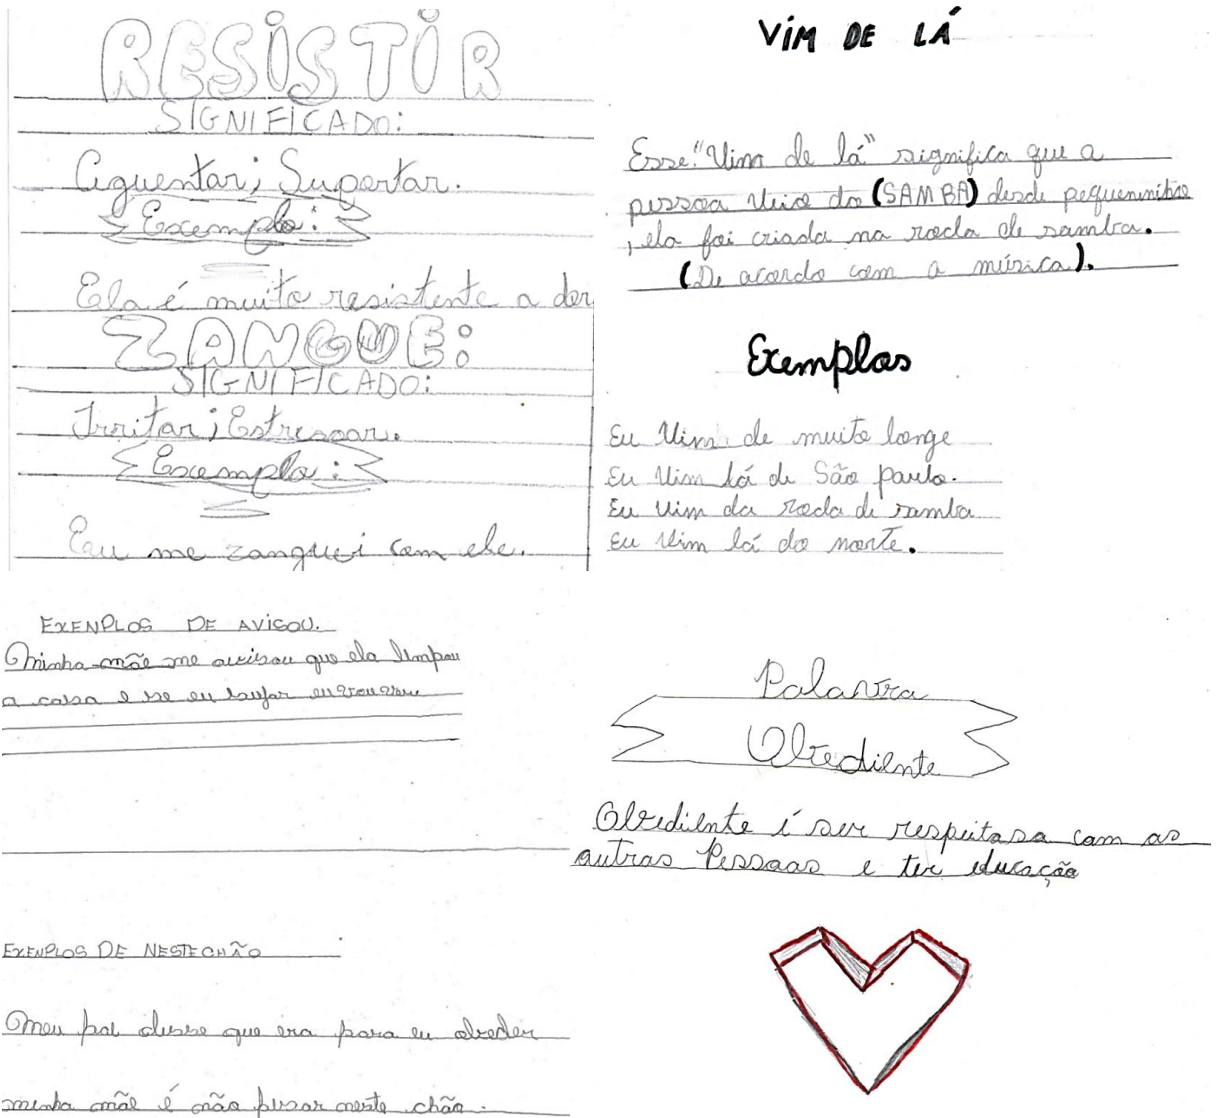 RESISTIR
SIGNIFICADO:
Aguentar; Suportar.
Exemplo:
Ela é muito resistente a dor
ZANGUE:
SIGNIFICADO:
Irritar; Estressar.
Exemplo:
Eu me zanguei com ele.
VIM DE LÁ
Esse "Vim de lá" significa que a
pessoa veio do (SAMBA) desde pequenininha
, ela foi criada na roda de samba.
(De acordo com a música).
Exemplos
Eu Vim de muito longe
Eu Vim lá de São paulo.
Eu vim da roda de samba
Eu Vim lá do norte.
EXENPLOS DE AVISOU.
Minha mãe me avisou que ela limpou
a casa e se eu sujar eu vou
Palavra
Obediente
Obediente é ser respeitosa com as
outras Pessoas e ter educação
EXENPLOS DE NESTE CHÃO
Meu pai disse que era para eu obeder
minha mãe é não pisar neste chão.